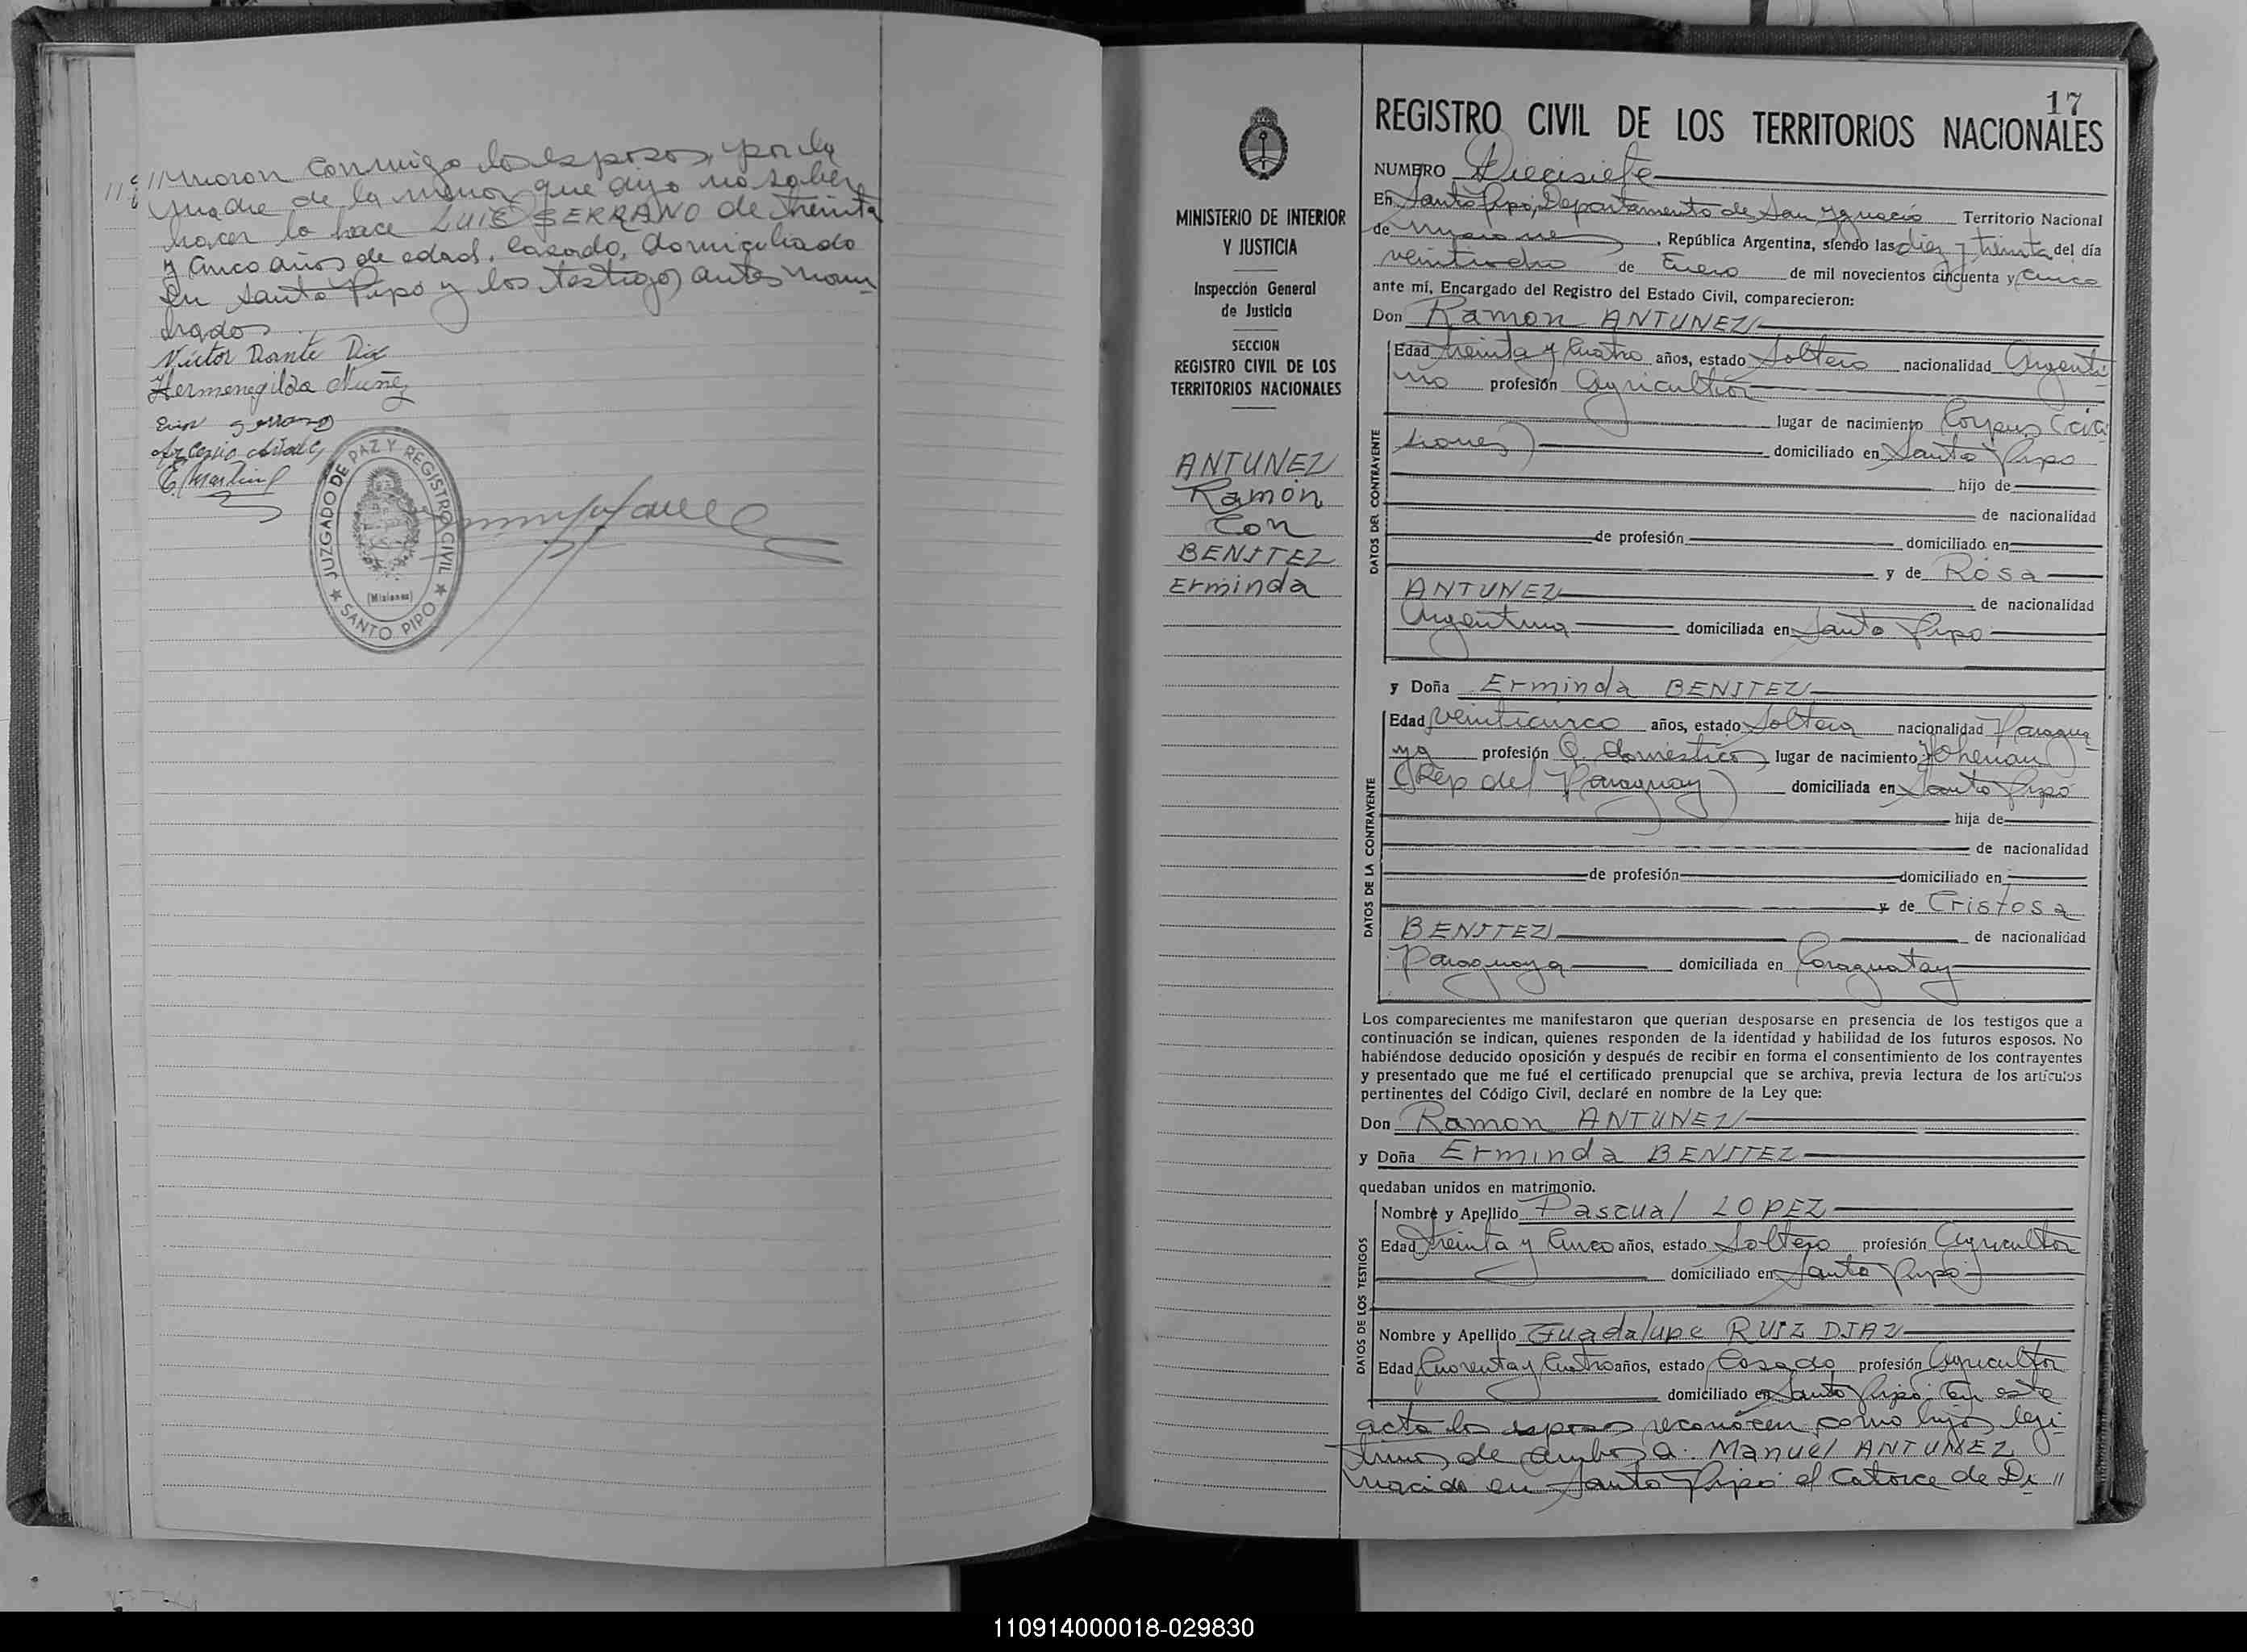 firmaron conmigo los esposos, por la
madre de la menor que dijo no saber
hacer lo hace LUIS SERRANO de treinta
y cinco años de edad, casado, domiciliado
en Santo Pipo y los testigos antes nom
brados
Victor Dante Diaz
Hermenegilda Nuñez
Luis Serrano
E. Martinez
JUZGADO DE PAZ Y REGISTRO CIVIL
(Misiones)
★ SANTO PIPO ★
17
MINISTERIO DE INTERIOR
Y JUSTICIA
Inspección General
de Justicia
SECCION
REGISTRO CIVIL DE LOS
TERRITORIOS NACIONALES
ANTUNEZ
Ramón
Con
BENITEZ
Erminda
REGISTRO CIVIL DE LOS TERRITORIOS NACIONALES
NUMERO Diecisiete
En Santo Pipo, Departamento de San Ygnacio Territorio Nacional
de Misiones, República Argentina, siendo las diez y treinta del día
veintiocho de Enero de mil novecientos cincuenta y cinco
ante mí, Encargado del Registro del Estado Civil, comparecieron:
Don Ramon ANTUNEZ
DATOS DEL CONTRAYENTE
Edad treinta y cuatro años, estado Soltero nacionalidad Argenti-
no profesión agricultor
lugar de nacimiento Corpus
siones) domiciliado en Santo Pipo
hijo de
de nacionalidad
de profesión domiciliado en
y de Rosa
ANTUNEZ de nacionalidad
Argentina domiciliada en Santo Pipo
y Doña Erminda BENITEZ
DATOS DE LA CONTRAYENTE
Edad veinticinco años, estado Soltera nacionalidad Paragua-
ya profesión Q. domésticos lugar de nacimiento Hohenau
(Rep del Paraguay) domiciliada en Santo Pipó
hija de
de nacionalidad
de profesión domiciliado en
y de Cristosa
BENITEZ de nacionalidad
Paraguaya domiciliada en Caraguatay
Los comparecientes me manifestaron que querían desposarse en presencia de los testigos que a
continuación se indican, quienes responden de la identidad y habilidad de los futuros esposos. No
habiéndose deducido oposición y después de recibir en forma el consentimiento de los contrayentes
y presentado que me fué el certificado prenupcial que se archiva, previa lectura de los artículos
pertinentes del Código Civil, declaré en nombre de la Ley que:
Don Ramon ANTUNEZ
y Doña Erminda BENITEZ
quedaban unidos en matrimonio.
DATOS DE LOS TESTIGOS
Nombre y Apellido Pascual LOPEZ
Edad treinta y cinco años, estado Soltero profesión Agricultor
domiciliado en Santo Pipo
Nombre y Apellido Guadalupe RUIZ DIAZ
Edad Cuarenta y cuatro años, estado Casado profesión agricultor
domiciliado en Santo Pipo. En este
acto los esposos reconocen como hijos legí-
timos de ambos a: Manuel ANTUNEZ
nacido en Santo Pipó el catorce de Di //
110914000018-029830